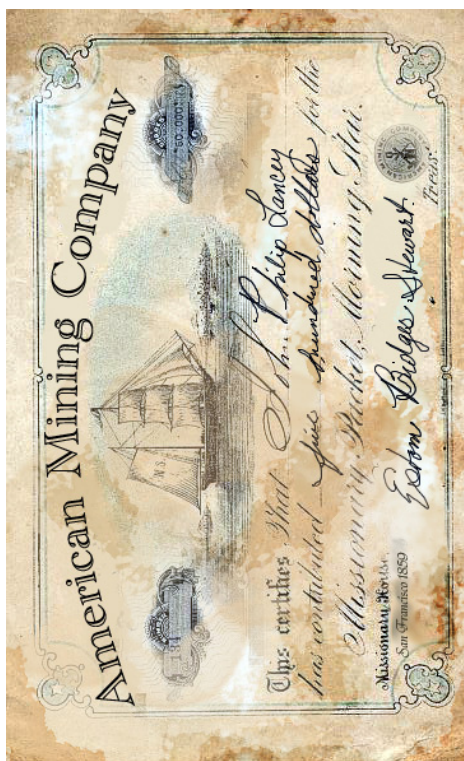 American Mining Company
This certifies That John Philip Lancey
has contributed five hundred dollars for the
Missionary Packet, Morning Star.
Missionary House,
San Francisco 1859
Estom Bridges Stewart.
Treas.
M S